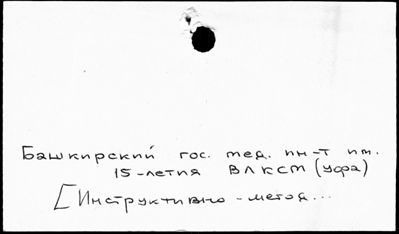 Башкирский гос. мед. ин-т им.
15-летия ВЛКСМ (Уфа)
[Инструктивно-метод...